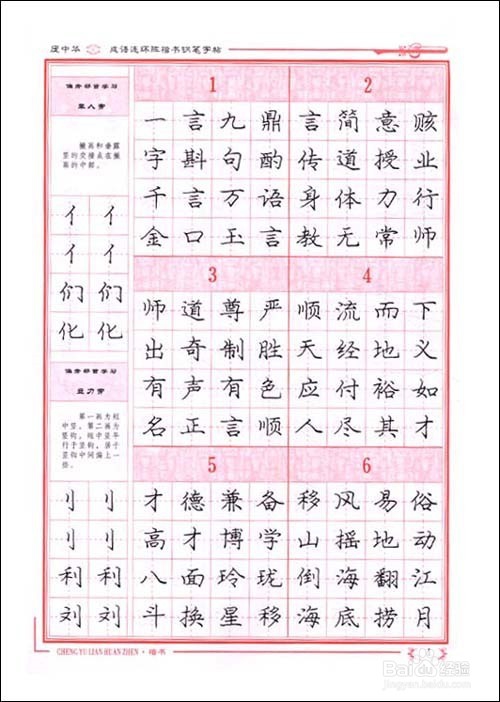 庞中华 成语连环阵楷书钢笔字帖
偏旁部首学习
单人旁
撇画和垂露
竖的交接点在撇
画的中部。
亻 亻
亻 亻
们 们
化 化
偏旁部首学习
立刀旁
第一画为短
中竖，第二画为
竖钩，短中竖平
行于竖钩，居于
竖钩中间偏上一
些。
刂 刂
刂 刂
利 利
刘 刘
1
一言九鼎
字斟句酌
千言万语
金口玉言
2
言简意赅
传道授业
身体力行
教无常师
3
师道尊严
出奇制胜
有声有色
名正言顺
4
顺流而下
天经地义
应付裕如
人尽其才
5
才德兼备
高才博学
八面玲珑
斗换星移
6
移风易俗
山摇地动
倒海翻江
海底捞月
CHENG YU LIAN HUAN ZHEN · 楷书
Baidu经验
jingyan.baidu.com